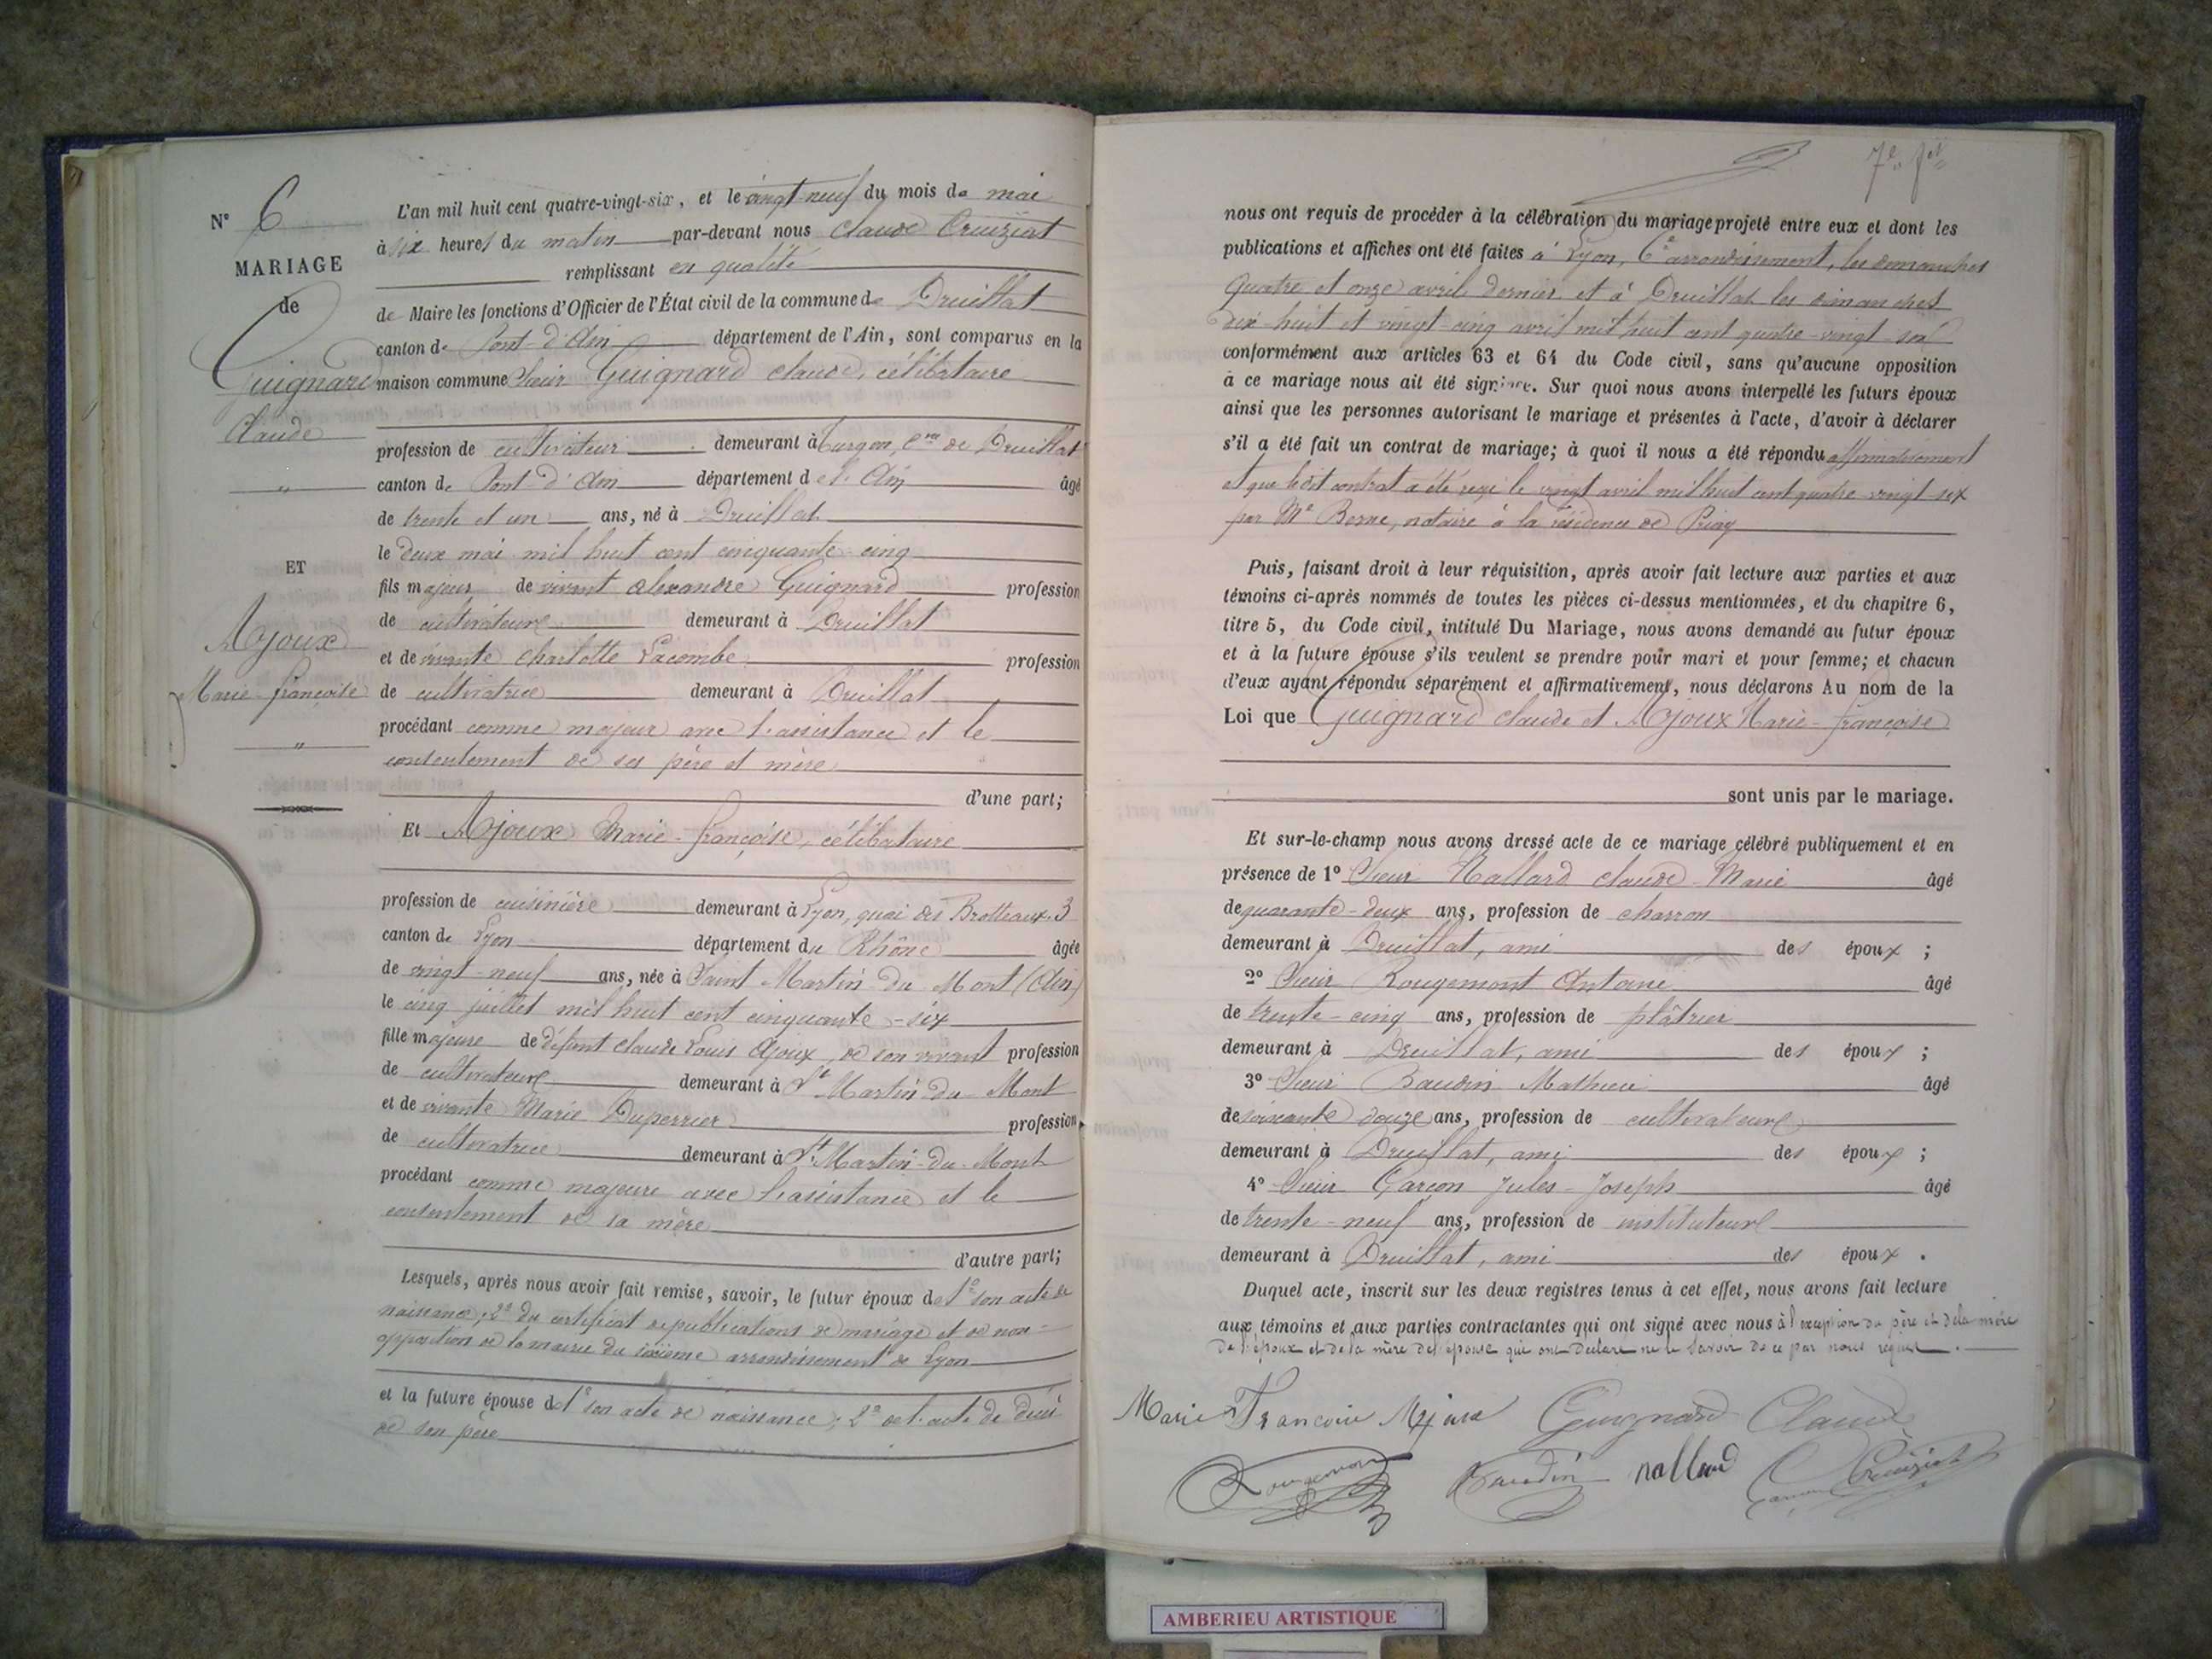 N° 6
MARIAGE
de
Guignard
Claude
"
ET
Ajoux
Marie-françoise
"
L'an mil huit cent quatre-vingt-six, et le vingt-neuf du mois de mai
à six heures du matin par-devant nous Claude Cruiziat
remplissant en qualité
de Maire les fonctions d'Officier de l'État civil de la commune de Druillat
canton de Pont-d'Ain département de l'Ain, sont comparus en la
maison commune Sieur Guignard Claude, célibataire
profession de cultivateur demeurant à Turgon, Cne de Druillat
canton de Pont-d'Ain département de l'Ain âgé
de trente et un ans, né à Druillat
le deux mai mil huit cent cinquante-cinq
fils majeur de vivant Alexandre Guignard profession
de cultivateur demeurant à Druillat
et de vivante Charlotte Lacombe profession
de cultivatrice demeurant à Druillat
procédant comme majeur avec l'assistance et le
consentement de ses père et mère
d'une part;
Et Ajoux Marie-françoise, célibataire
profession de cuisinière demeurant à Lyon, quai des Brotteaux, 3
canton de Lyon département du Rhône âgée
de vingt-neuf ans, née à Saint Martin-du-Mont (Ain)
le cinq juillet mil huit cent cinquante-six
fille majeure de défunt Claude Louis Ajoux, de son vivant profession
de cultivateur demeurant à St Martin-du-Mont
et de vivante Marie Duperrier profession
de cultivatrice demeurant à St Martin-du-Mont
procédant comme majeure avec l'assistance et le
consentement de sa mère
d'autre part;
Lesquels, après nous avoir fait remise, savoir, le futur époux de 1° son acte de
naissance; 2° du certificat de publications de mariage et de non-
opposition de la mairie du sixième arrondissement de Lyon
et la future épouse de 1° son acte de naissance; 2° de l'acte de décès
de son père
7e ft
nous ont requis de procéder à la célébration du mariage projeté entre eux et dont les
publications et affiches ont été faites à Lyon, 6e arrondissement, les dimanches
quatre et onze avril dernier et à Druillat les dimanches
dix-huit et vingt-cinq avril mil huit cent quatre-vingt-six
conformément aux articles 63 et 64 du Code civil, sans qu'aucune opposition
à ce mariage nous ait été signifiée. Sur quoi nous avons interpellé les futurs époux
ainsi que les personnes autorisant le mariage et présentes à l'acte, d'avoir à déclarer
s'il a été fait un contrat de mariage; à quoi il nous a été répondu affirmativement
et que ledit contrat a été reçu le vingt avril mil huit cent quatre-vingt-six
par Me Berne, notaire à la résidence de Priay
Puis, faisant droit à leur réquisition, après avoir fait lecture aux parties et aux
témoins ci-après nommés de toutes les pièces ci-dessus mentionnées, et du chapitre 6,
titre 5, du Code civil, intitulé Du Mariage, nous avons demandé au futur époux
et à la future épouse s'ils veulent se prendre pour mari et pour femme; et chacun
d'eux ayant répondu séparément et affirmativement, nous déclarons Au nom de la
Loi que Guignard Claude et Ajoux Marie-françoise
sont unis par le mariage.
Et sur-le-champ nous avons dressé acte de ce mariage célébré publiquement et en
présence de 1° Sieur Rallard Claude-Marie âgé
de quarante-deux ans, profession de charron
demeurant à Druillat, ami des époux ;
2° Sieur Rougemont Antoine âgé
de trente-cinq ans, profession de plâtrier
demeurant à Druillat, ami des époux ;
3° Sieur Baudin Mathieu âgé
de soixante douze ans, profession de cultivateur
demeurant à Druillat, ami des époux ;
4° Sieur Garçon Jules-Joseph âgé
de trente-neuf ans, profession de instituteur
demeurant à Druillat, ami des époux .
Duquel acte, inscrit sur les deux registres tenus à cet effet, nous avons fait lecture
aux témoins et aux parties contractantes qui ont signé avec nous à l'exception du père et de la mère
de l'époux et de la mère de l'épouse qui ont déclaré ne le savoir de ce par nous requis.
Marie Francoise Ajoux Guignard Claude
Rougemont Baudin rallard Cruiziat
AMBERIEU ARTISTIQUE